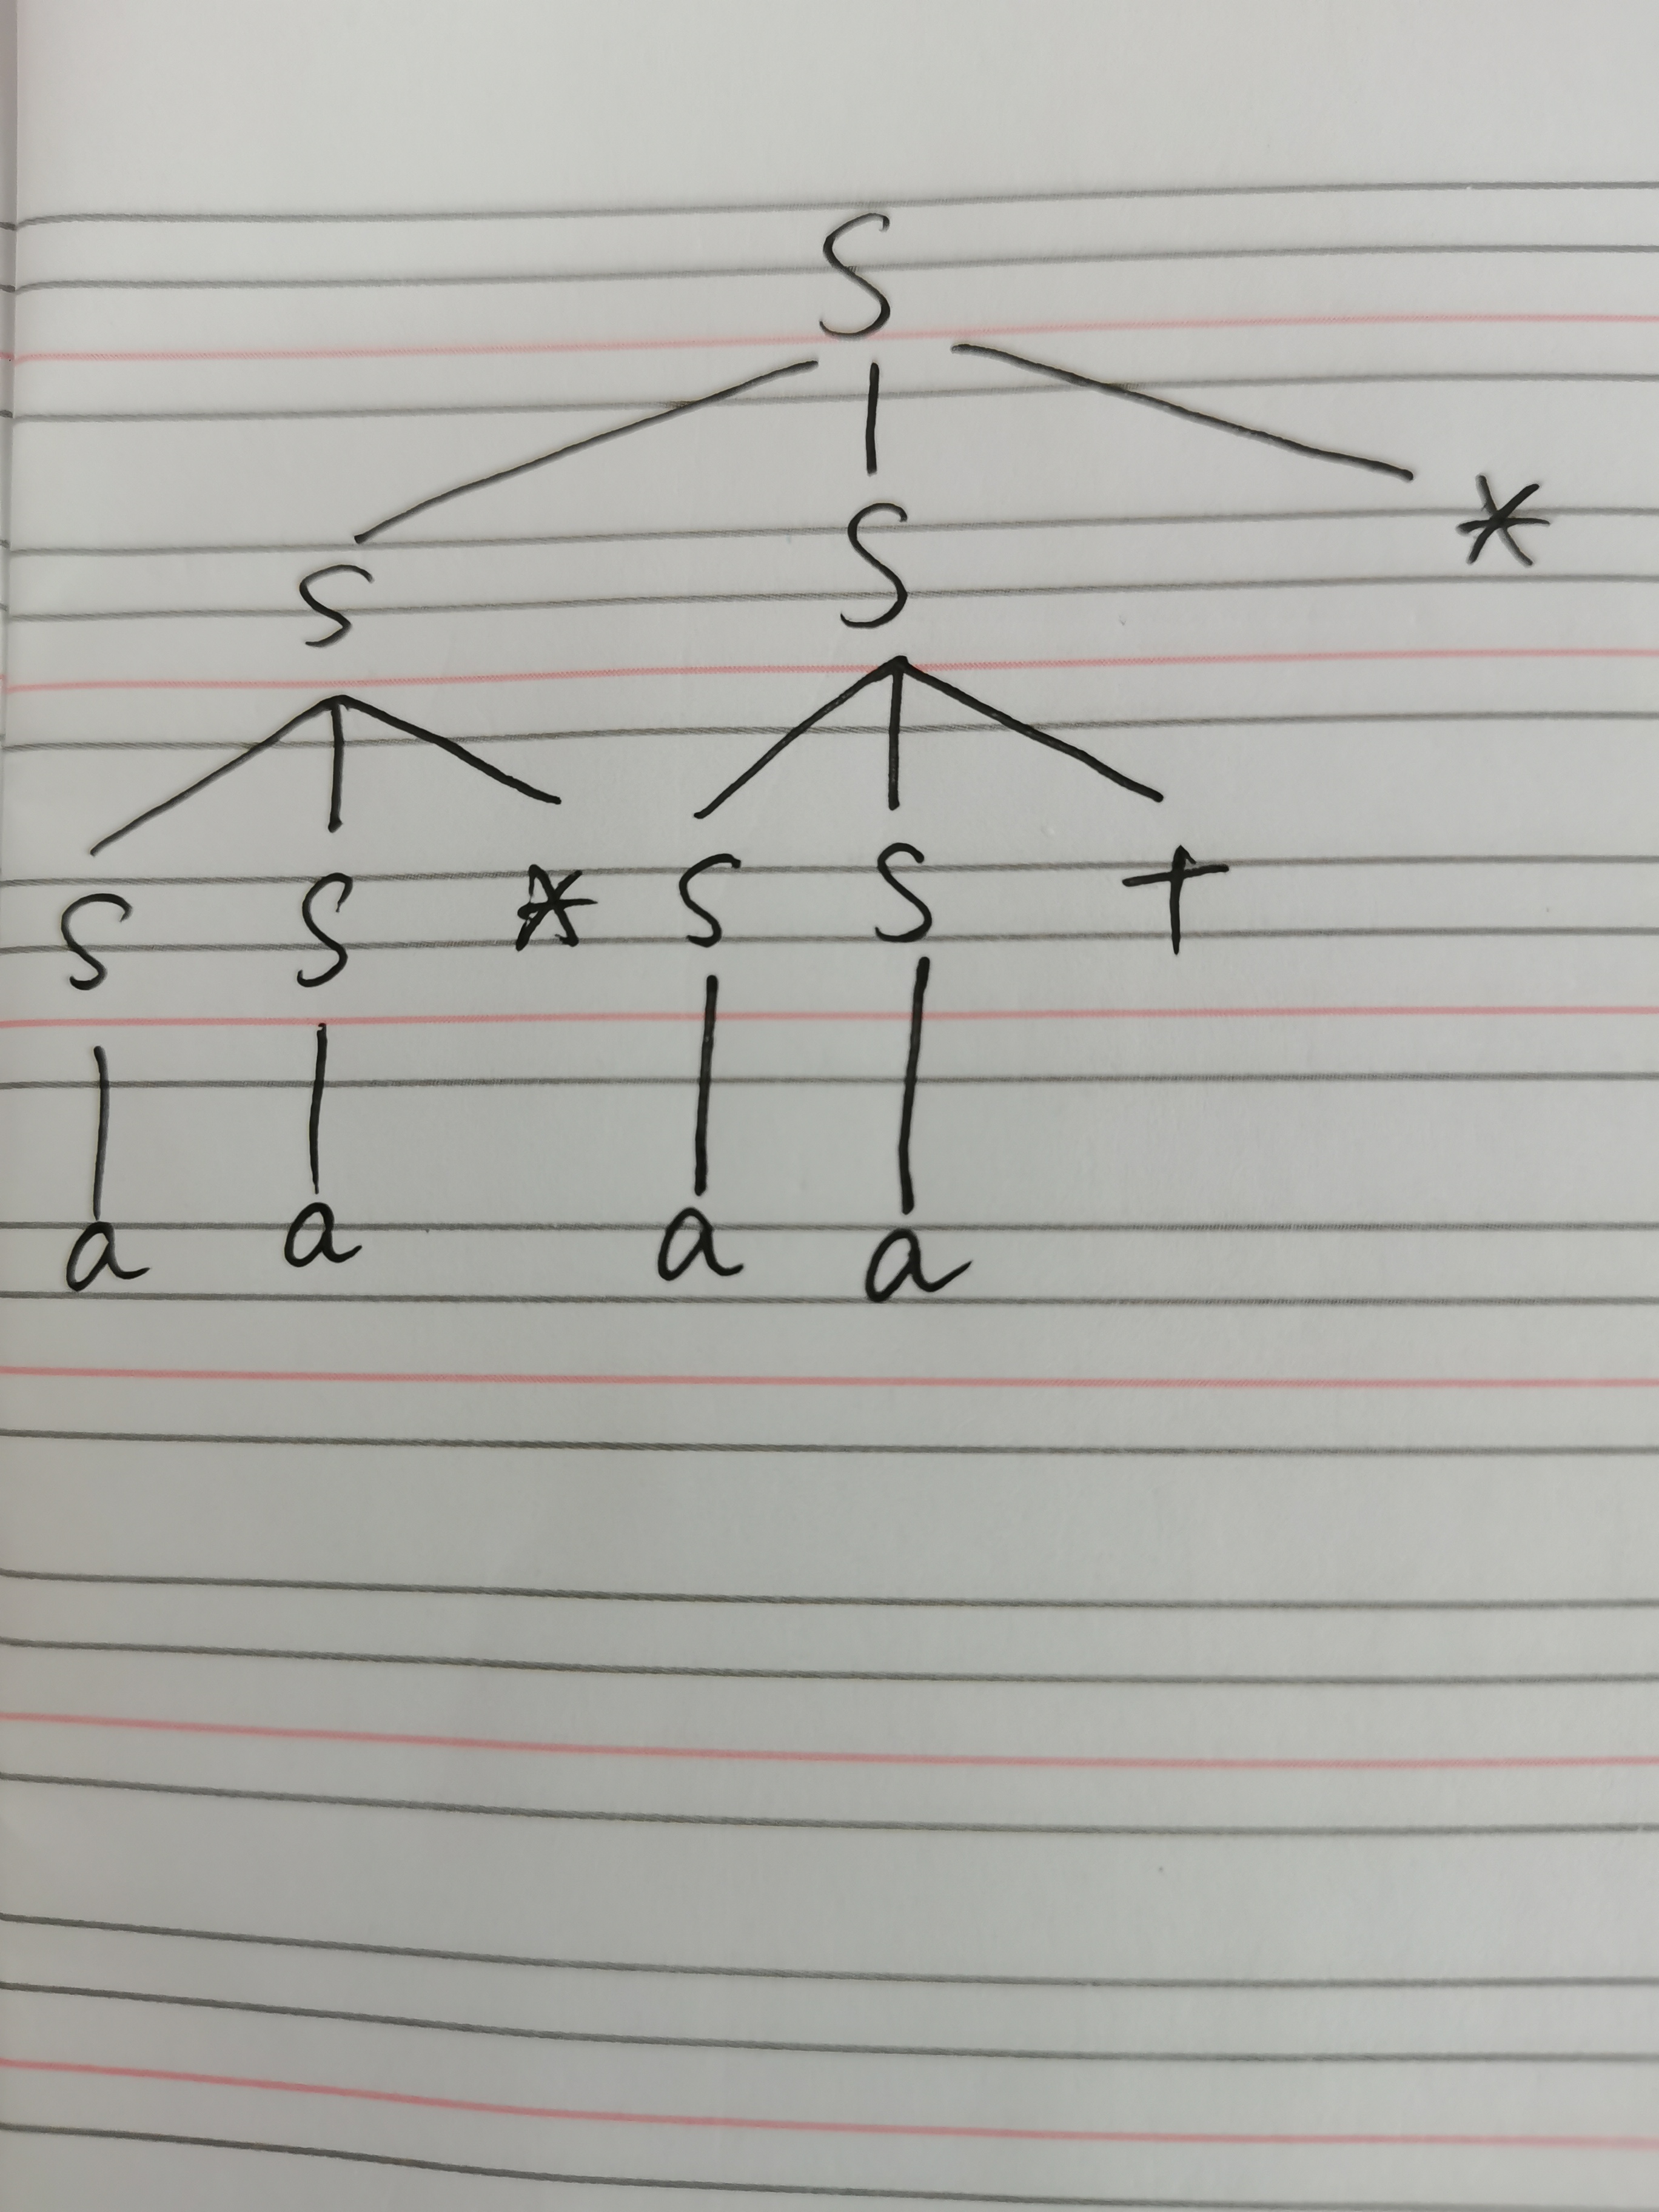 S
S S *
S S * S S +
a a a a